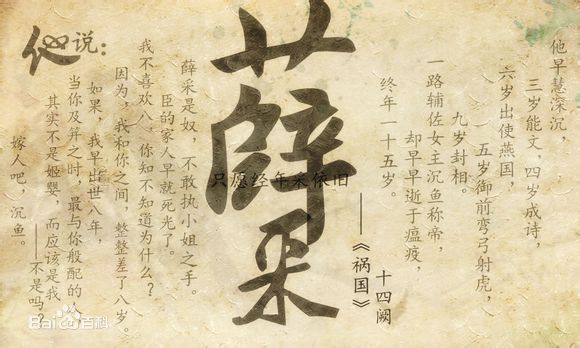 他早慧深沉，
三岁能文，四岁成诗，
六岁出使燕国，
五岁御前弯弓射虎，
九岁封相。
一路辅佐女王沉鱼称帝，
却早早逝于瘟疫，
终年一十五岁。
十四阙
——《祸国》
薛采
只愿经年采依旧
他说：
薛采是奴，不敢执小姐之手。
臣的家人早就死光了。
我不喜欢八，你知不知道为什么？
因为，我和你之间，整整差了八岁。
如果，我早出世八年，
当你及笄之时，最与你般配的人，
其实不是姬婴，而应该是我
——不是吗？
嫁人吧，沉鱼。
Bai百科